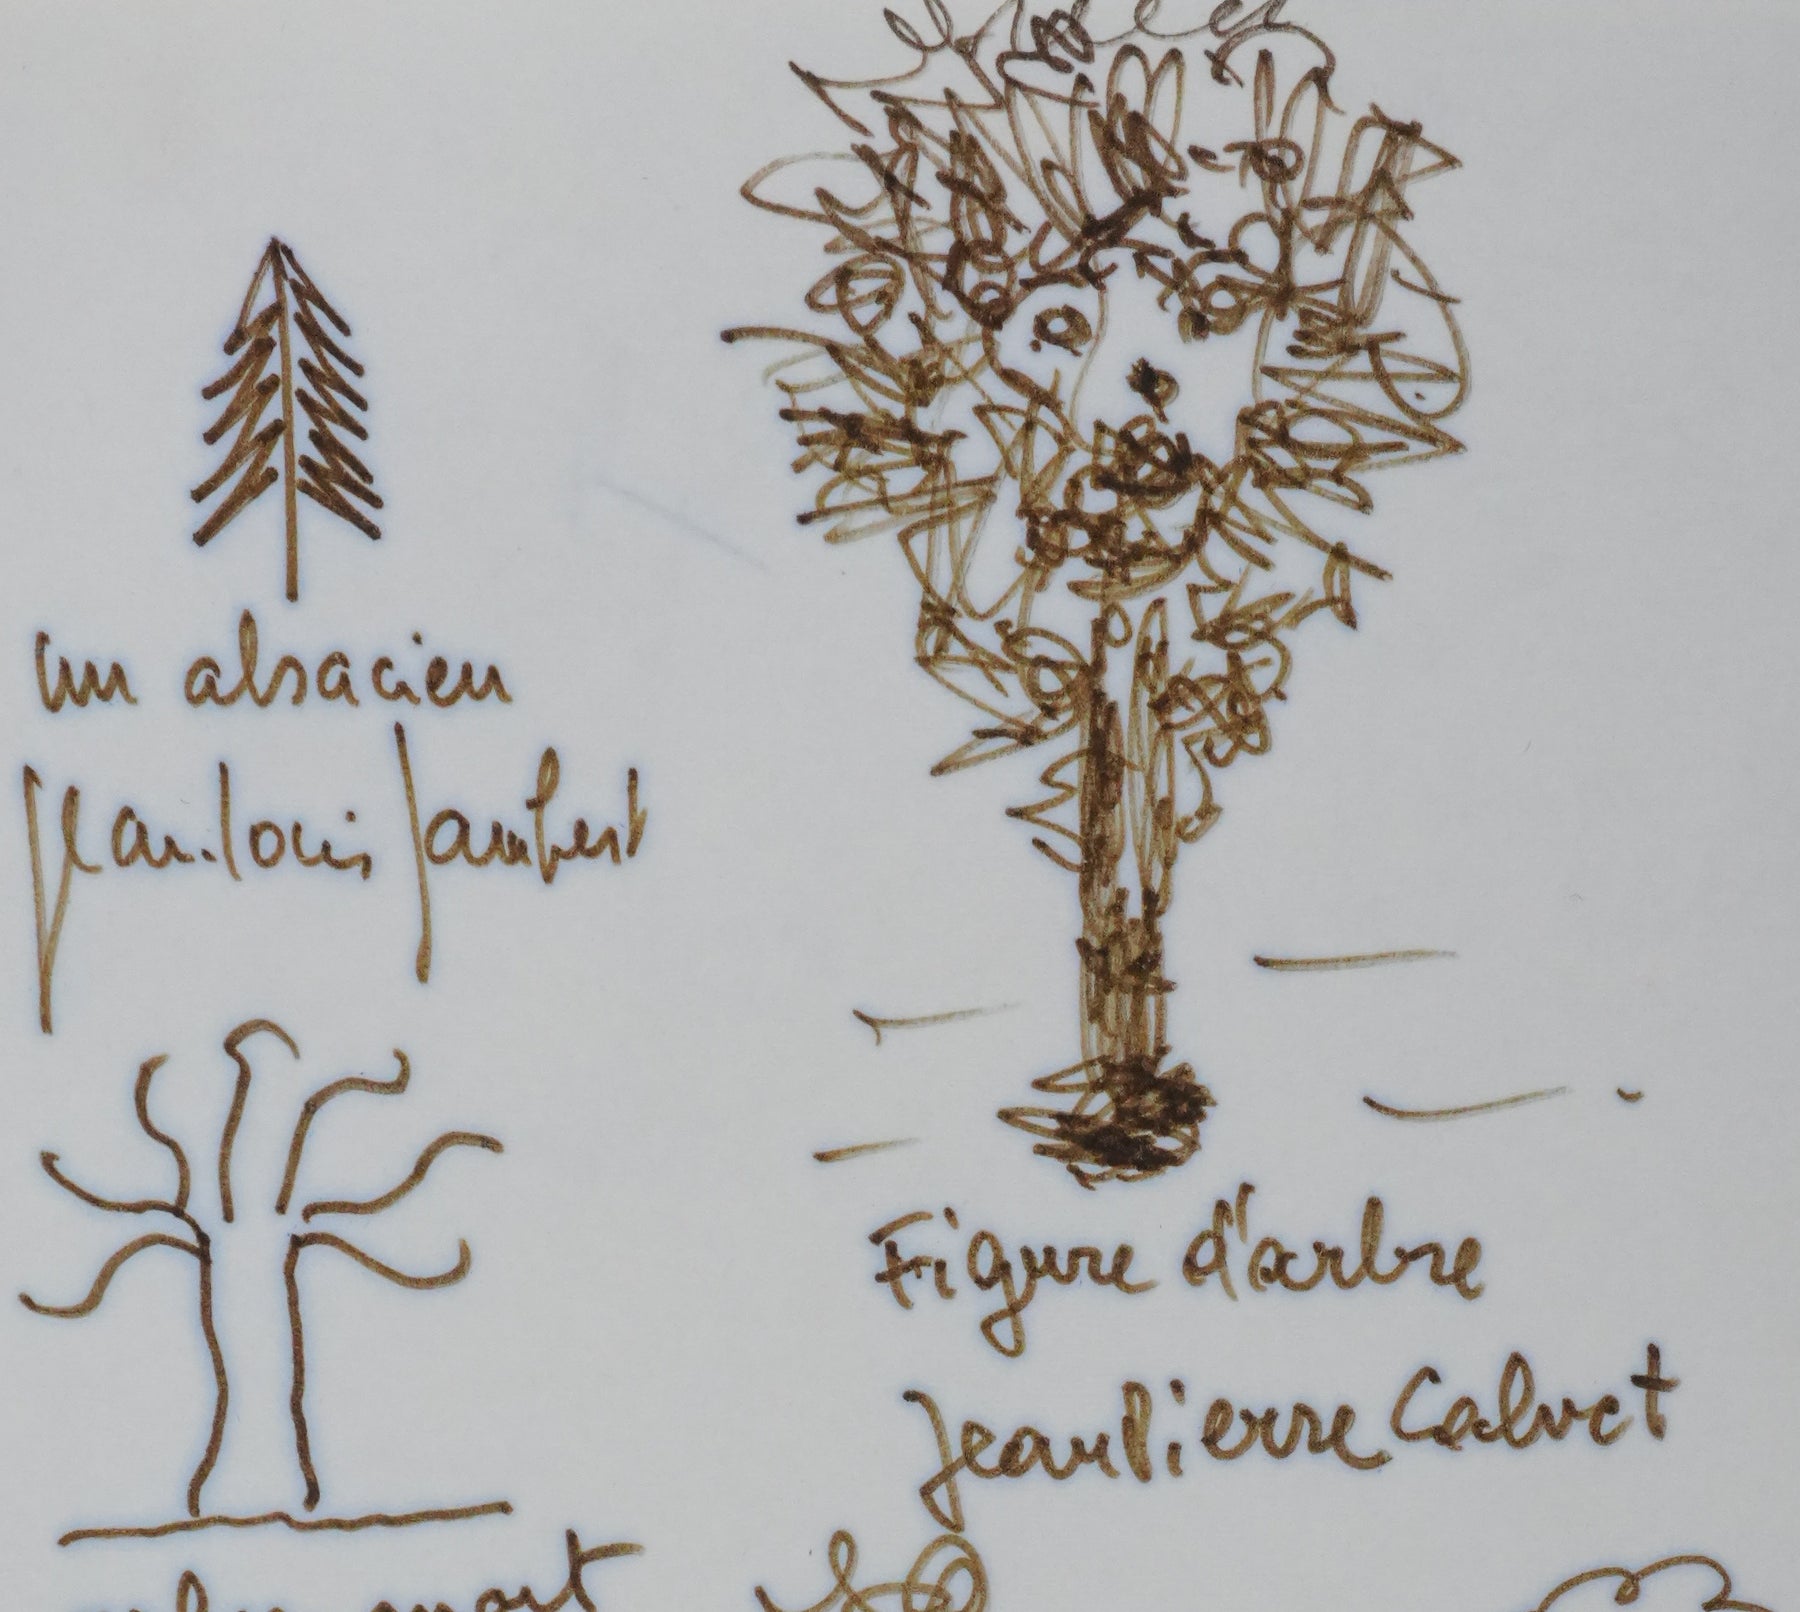 un alsacien
Jean-Louis Jambert
Figure d'arbre
Jean Pierre Calvet
arbre mort